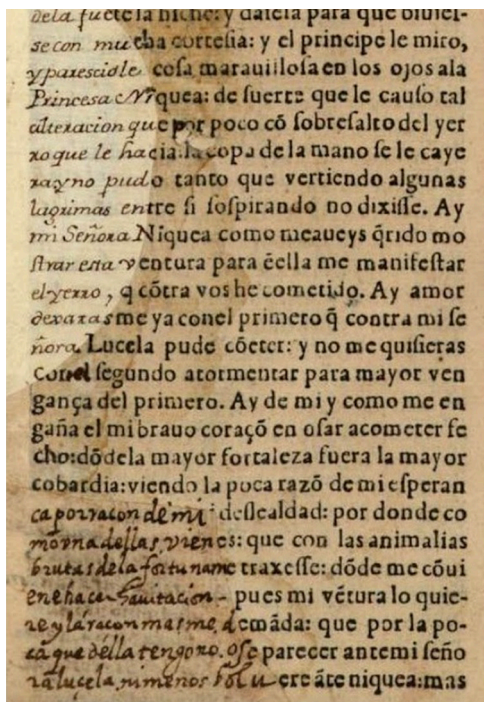 dela fuẽte la hiche: y daiela para que biuies-
se con mucha cortesia: y el principe le miro,
y paresciole cosa marauillosa en los ojos ala
Princesa Niquea: de suerte que le causo tal
alteracion que por poco cõ sobresalto del yer
ro que le hacia. la copa de la mano se le caye
ra y no pudo tanto que vertiendo algunas
lagrimas entre si sospirando no dixisse. Ay
mi Señora Niquea como meaueys q̃rido mo
strar esta ventura para ẽella me manifestar
el yerro, q cõtra vos he cometido. Ay amor
dexarasme ya conel primero q̃ contra mi se
ñora. Lucela pude cõeter: y no me quisieras
conel segundo atormentar para mayor ven
gança del primero. Ay de mi y como me en
gaña el mi brauo coraçõ en osar acometer fe
cho: dõdela mayor fortaleza fuera la mayor
cobardia: viendo la poca razõ de mi esperan
ca por racon de mi deslealdad: por donde co
mo una dellas vienes: que con las animalias
brutas de la fortuna me traxesse: dõde me cõui
ene hacer havitacion - pues mi vẽtura lo quie-
re y la racon mas me demãda: que por la po-
ca que della tengo no. ose parecer antemi seño
ra lucela ni menos bolu ere ãte niquea: mas